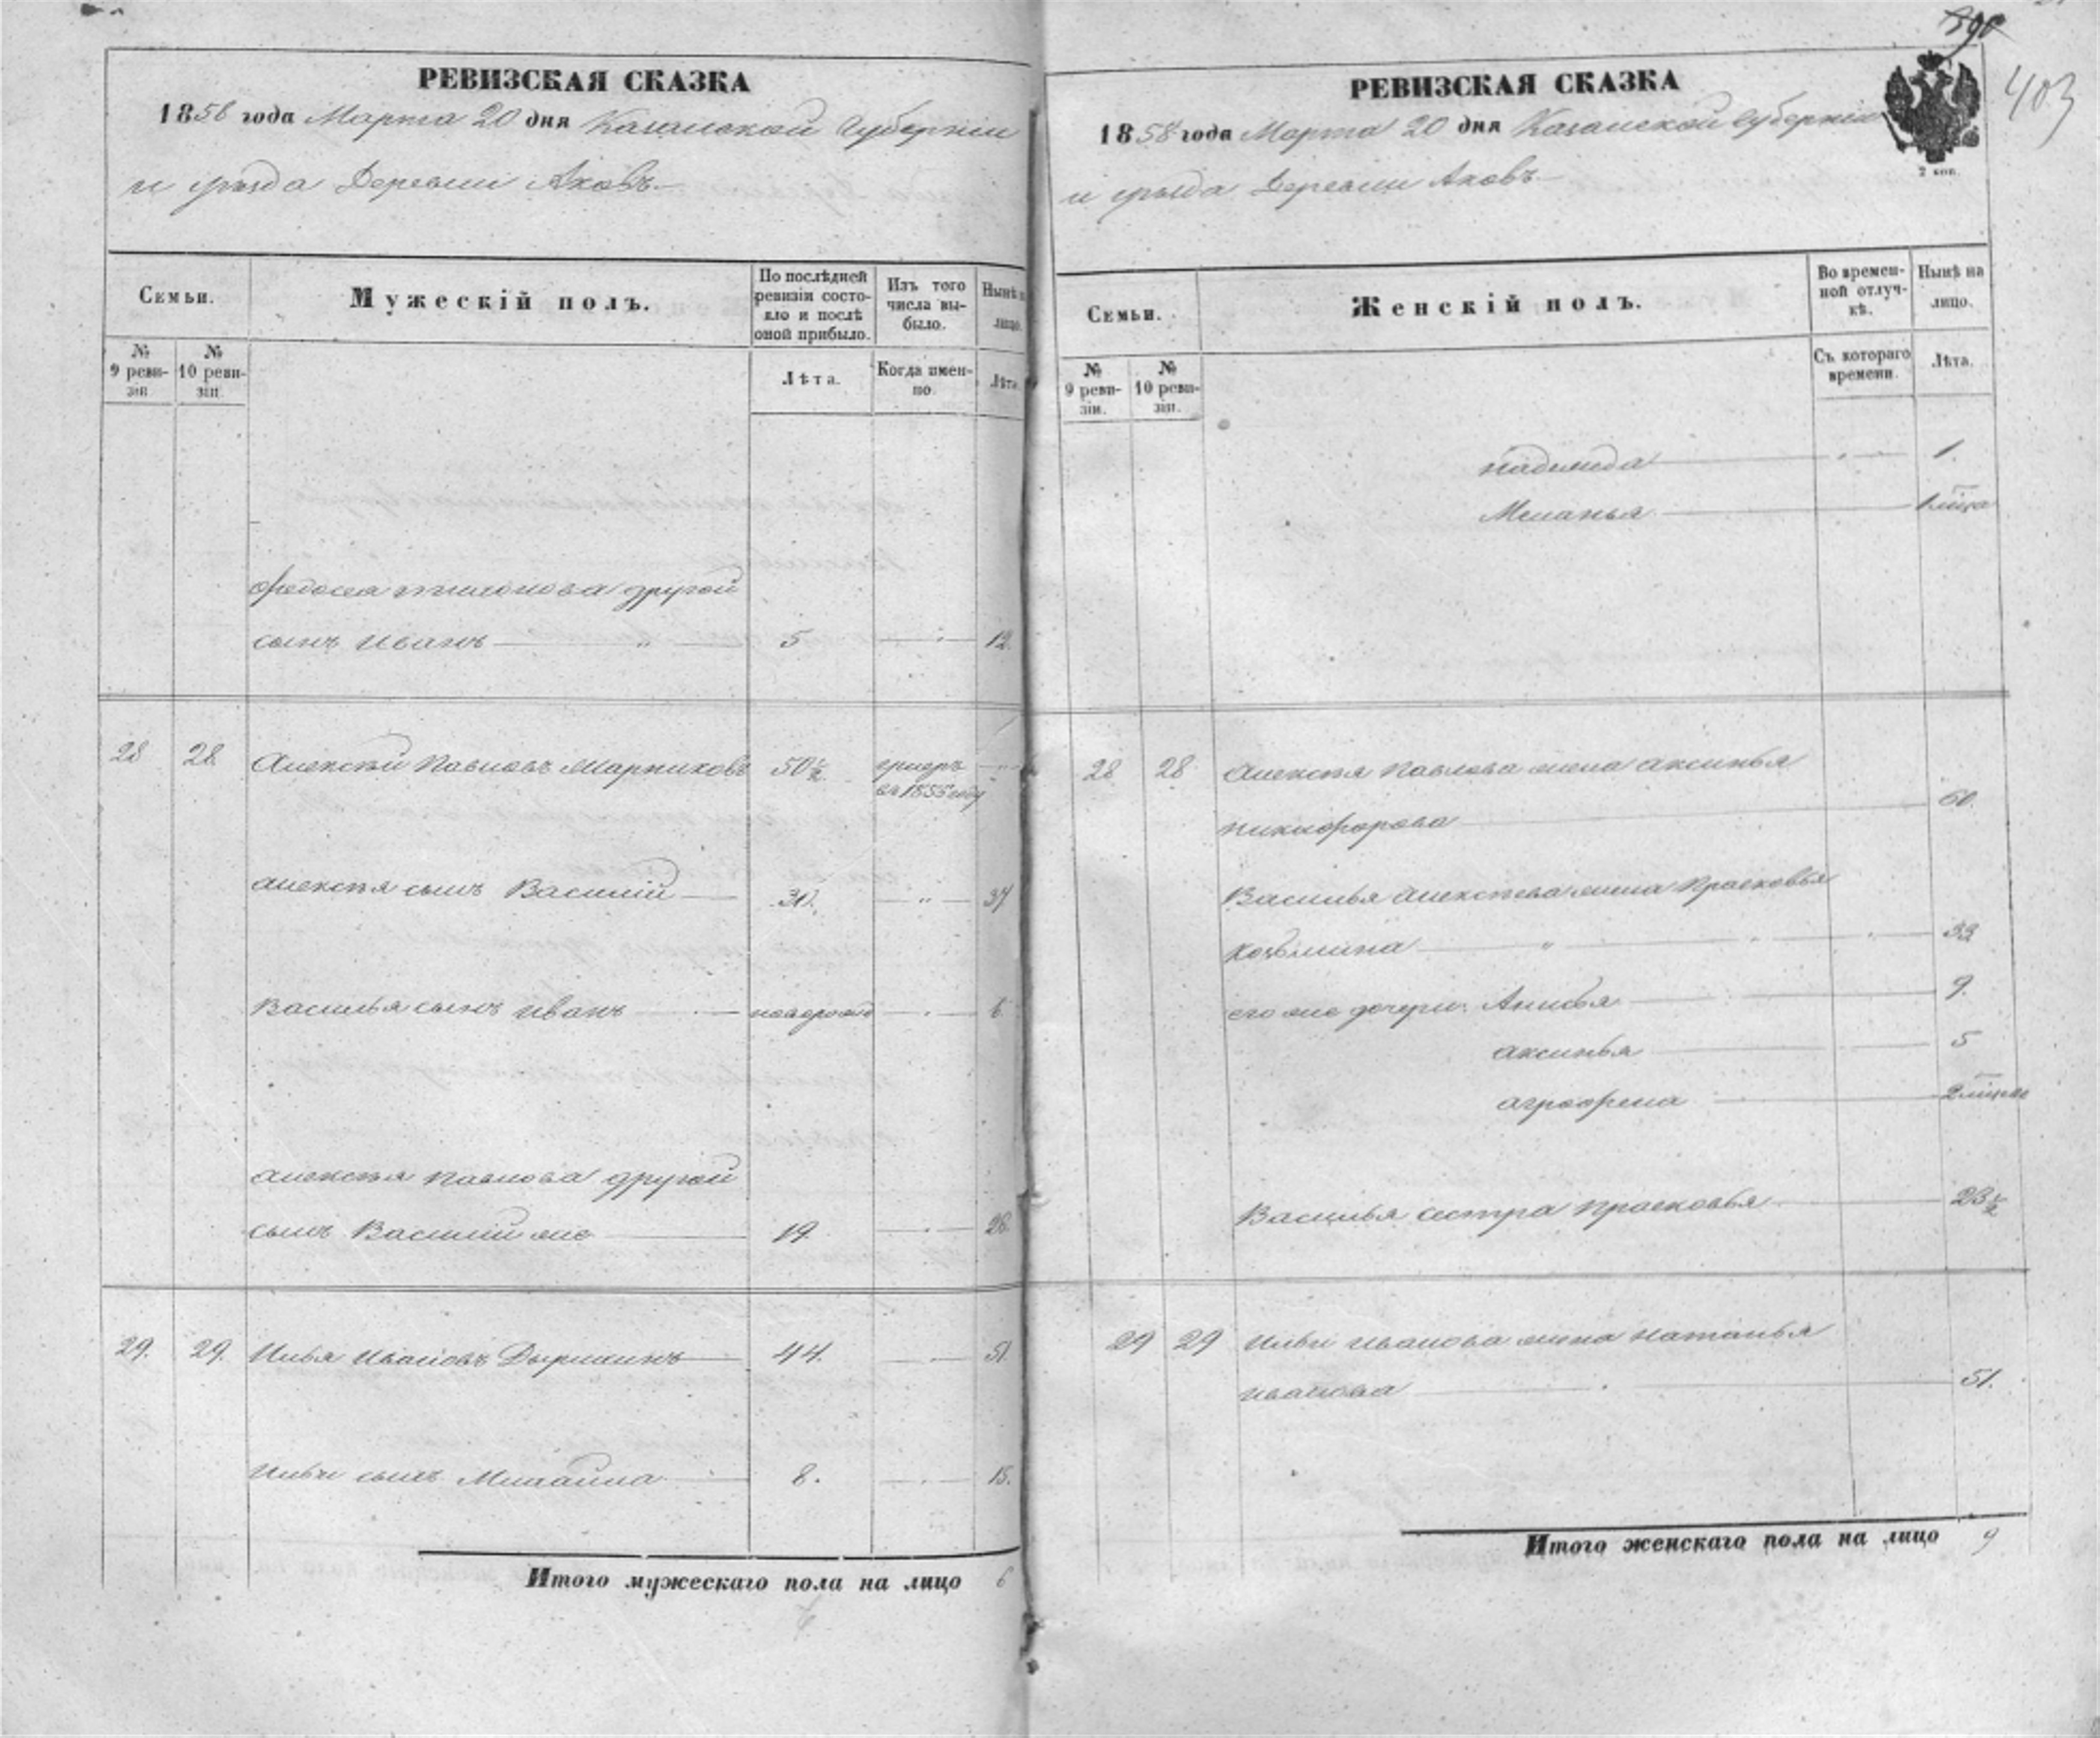 РЕВИЗСКАЯ СКАЗКА
1858 года Марта 20 дня Казанской Губернiи
и уѣзда Деревни Аковъ
Семьи.
Мужескiй полъ.
По послѣдней ревизiи состояло и послѣ оной прибыло.
Изъ того числа выбыло.
Нынѣ на лицо.
№ 9 ревизiи
№ 10 ревизiи.
Лѣта.
Когда именно.
Лѣта.
Федосея другой
сынъ Иванъ — „ — 5 — 12.
28 28 Алексѣй Павловъ 50½ умеръ
въ 1855 году
Алексѣя сынъ Василiй — 30. — „ — 37
Василья сынъ Иванъ — новорожд — 6
Алексѣя Павлова другой
сынъ Василiй же — 19. — 26.
29. 29. Илья Ивановъ 44. — 51.
Ильи сынъ Михайла — 8. — 15.
Итого мужескаго пола на лицо 6
403
РЕВИЗСКАЯ СКАЗКА
1858 года Марта 20 дня Казанской Губернiи
2 коп.
и уѣзда Деревни Аковъ
Семьи.
Женскiй полъ.
Во временной отлучкѣ.
Нынѣ на лицо.
№ 9 ревизiи.
№ 10 ревизiи.
Съ котораго времени.
Лѣта.
Надежда — 1.
Меланья — 1 мѣца
28 28 Алексѣя Павлова жена Аксинья
Никифорова — 60.
Василья Алексѣева жена Прасковья
Козьмина — „ — 33
его же дочери: Анисья — 9.
Аксинья — 5
Аграфена — 2 мѣца
Василья сестра Прасковья — 23½
29 29 Ильи Иванова жена Наталья
Иванова — 51.
Итого женскаго пола на лицо 9